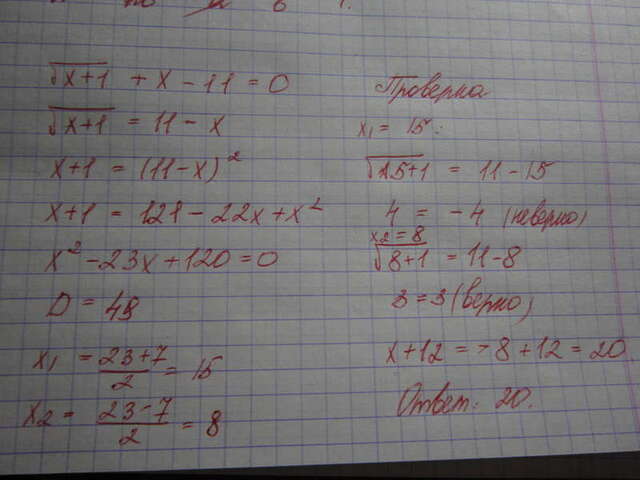 √x+1 + x - 11 = 0
√x+1 = 11 - x
x+1 = (11-x)²
x+1 = 121 - 22x + x²
x² - 23x + 120 = 0
D = 49
x₁ = 23+7/2 = 15
x₂ = 23-7/2 = 8
Проверка
x₁ = 15:
√15+1 = 11 - 15
4 = -4 (неверно)
x₂ = 8
√8+1 = 11-8
3 = 3 (верно)
x+12 = 8 + 12 = 20
Ответ: 20.